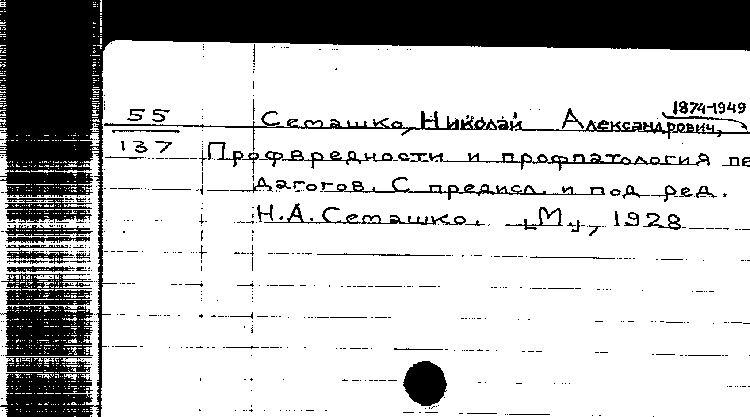 1874-1949
55 Семашко, Николай Александрович,
137 Профвредности и профпатология пе
дагогов. С предисл. и под ред.
Н.А. Семашко. [М], 1928